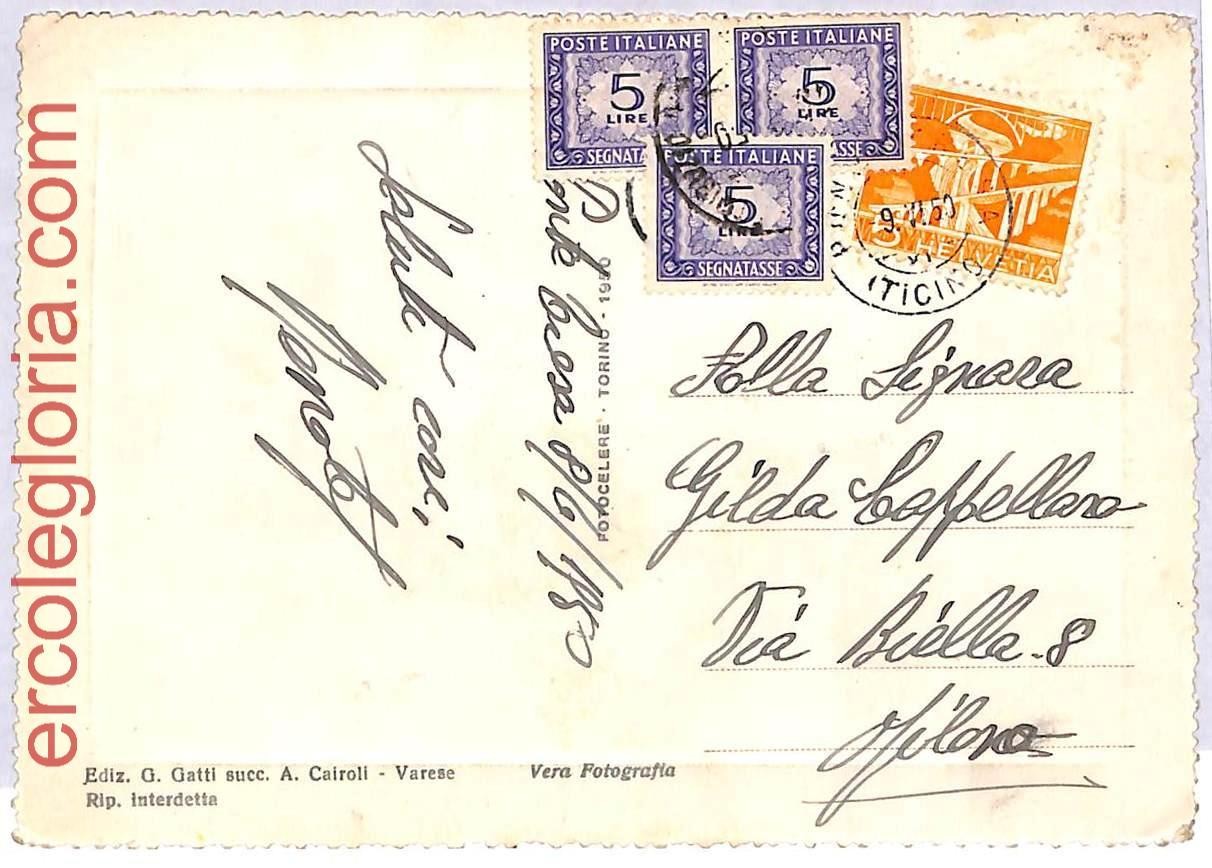 ercolegloria.com
POSTE ITALIANE
5
LIRE
SEGNATA
POSTE ITALIANE
5
LIRE
SSE
STE ITALIANE
5
LIRE
SEGNATASSE
5 HELVETIA
9.VI.50
(TICINO)
Ponte Tresa 8/6/1950
Salute cari,
FOTOCELERE · TORINO · 1950
Signora
Gilda Cappellaro
Via Biella. 8
Milano
Ediz. G. Gatti succ. A. Cairoli - Varese
Rip. interdetta
Vera Fotografia